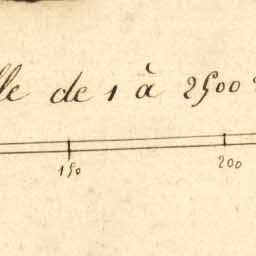 lle de 1 à 2500
150 200